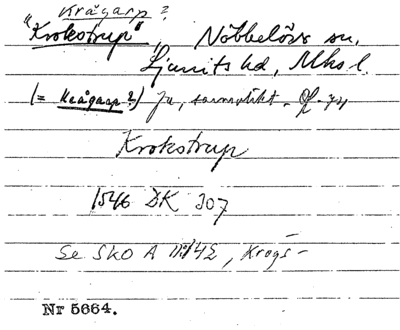 Krågarp?
"Krokstrup", Nöbbelöv sn.
Ljunits hd, Mhs l.
(= Krågarp?) Ja, sannolikt.
Krokstrup
1546 DK 307
Se SKO A 142, Krogs-
Nr 5664.